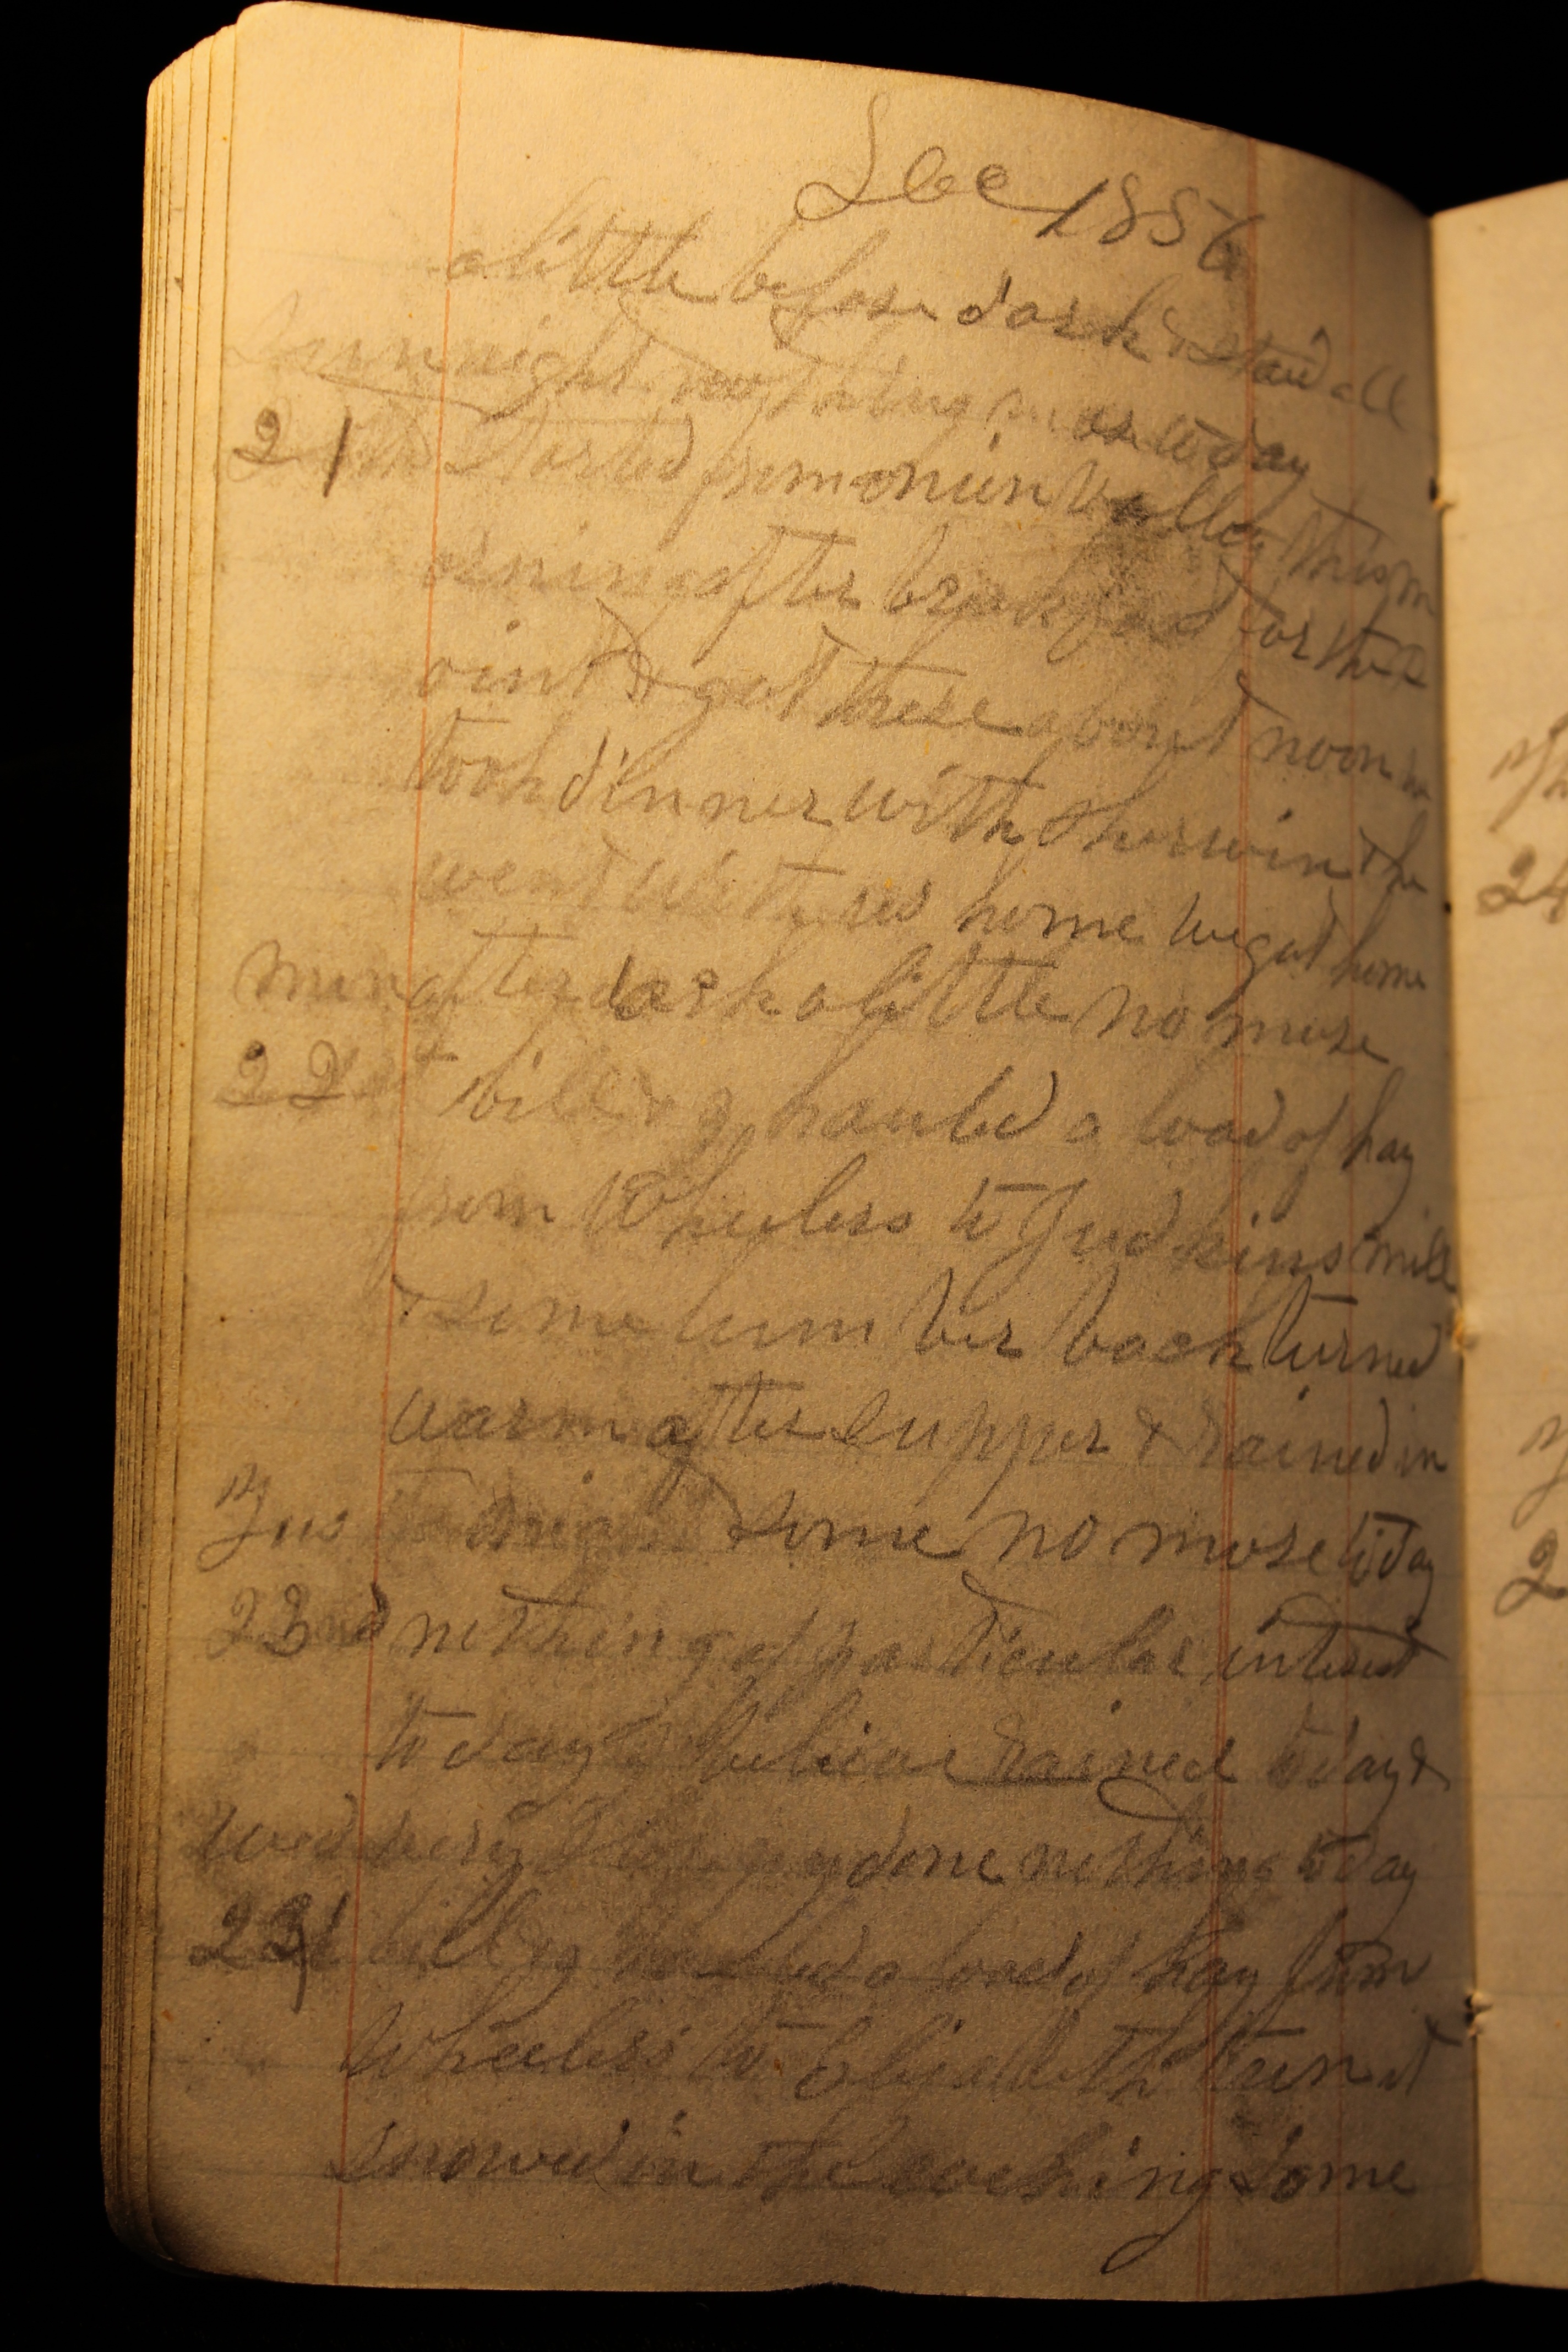 Dec 1886
a little before dark & staid all
night nothing more today
21 Started from onion valley this m
orning after brekfast for the p
oint & got there about noon we
took dinner with Sherwin & he
went with us home we got home
mon after dark a little no more
22 bill & I hauled a load of hay
from Wheelers to Judkins mill
& some lumber back turned
warm after supper & rained in
Tues some no more to day
23rd nothing of particular interest
to day I believe rained to day &
wed done nothing to day
23 bill & I hauled a load of hay from
Wheelers to Elizabethtown it
snowed in the evening some
24
2